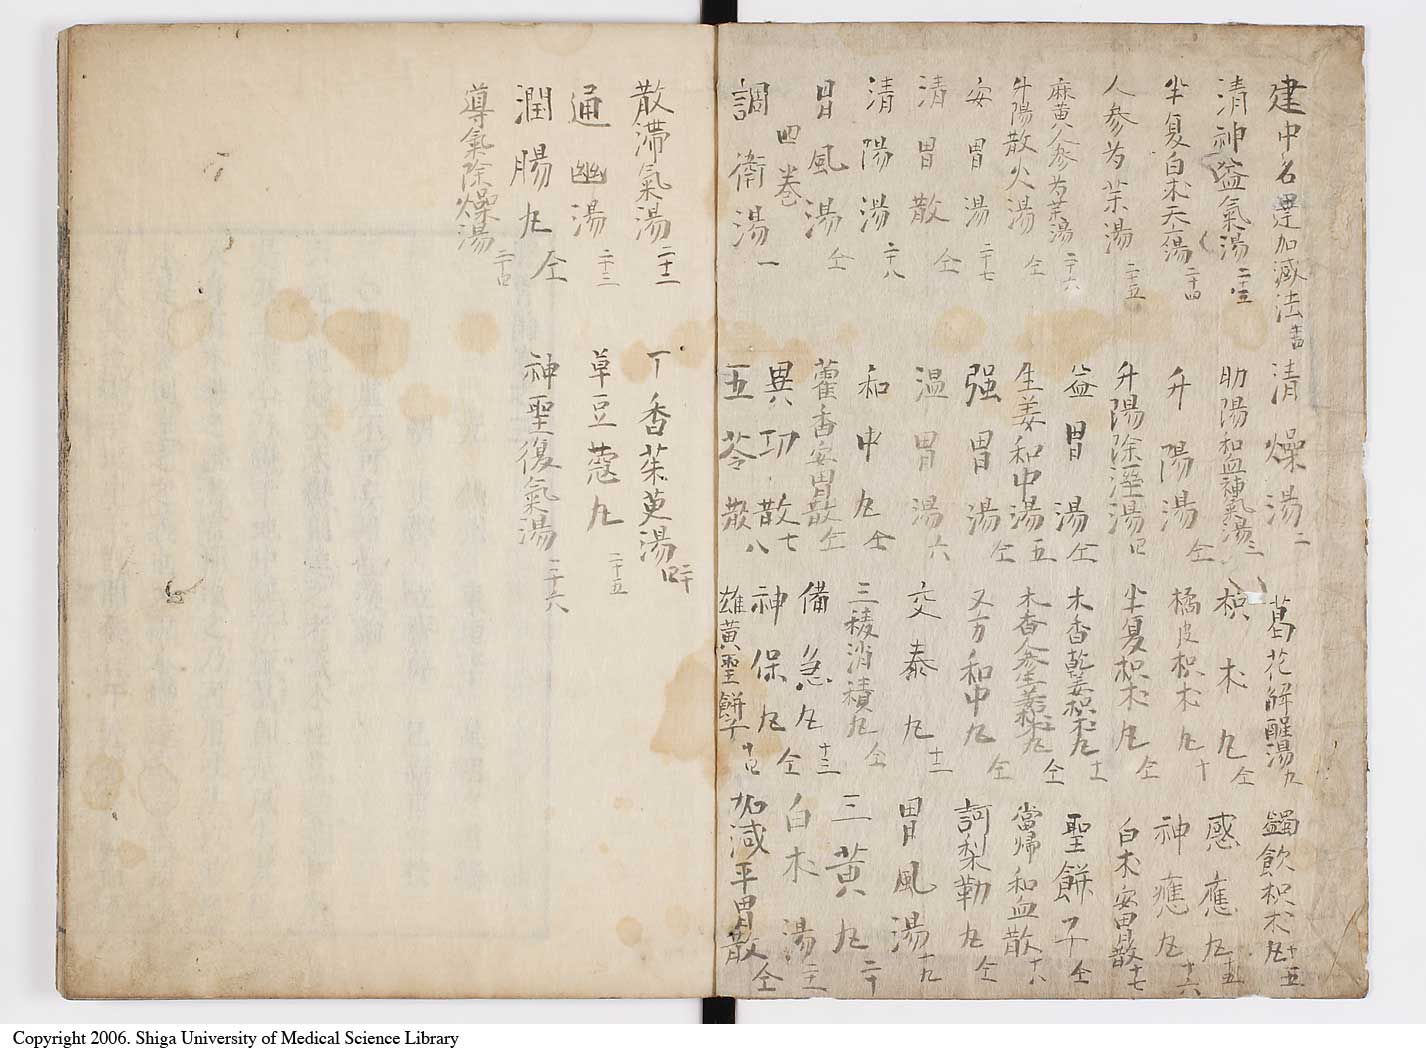 建中名是加減法
清神益氣湯 二十三
半夏白朮天麻湯 二十四
人参芍薬湯 二十五
麻黄人参芍薬湯 二十六
升陽散火湯 仝
安胃湯 二十七
清胃散 仝
清陽湯 二十八
胃風湯 仝
四巻
調衛湯 一
清燥湯 二
助陽和血補氣湯 三
升陽湯 仝
升陽除湿湯 四
益胃湯 仝
生姜和中湯 五
强胃湯 仝
温胃湯 六
和中丸 仝
藿香安胃散 仝
異功散 七
五苓散 八
葛花解酲湯 九
枳朮丸 仝
橘皮枳朮丸 十
半夏枳朮丸 仝
木香乾姜枳朮丸 十一
木香人参生姜枳朮丸 仝
又方和中丸 仝
交泰丸 十二
三稜消積丸 仝
備急丸 十三
神保丸 仝
雄黄聖餅子 十四
蠲飲枳朮丸 十五
感應丸 十五
神應丸 十六
白朮安胃散 十七
聖餅子 仝
當帰和血散 十八
訶梨勒丸 仝
胃風湯 十九
三黄丸 二十
白朮湯 二十一
加減平胃散 仝
散滞氣湯 二十二
通幽湯 二十三
潤腸丸 仝
導氣除燥湯 二十四
丁香茱萸湯 二十四
草豆蔻丸 二十五
神聖復氣湯 二十六
Copyright 2006. Shiga University of Medical Science Library